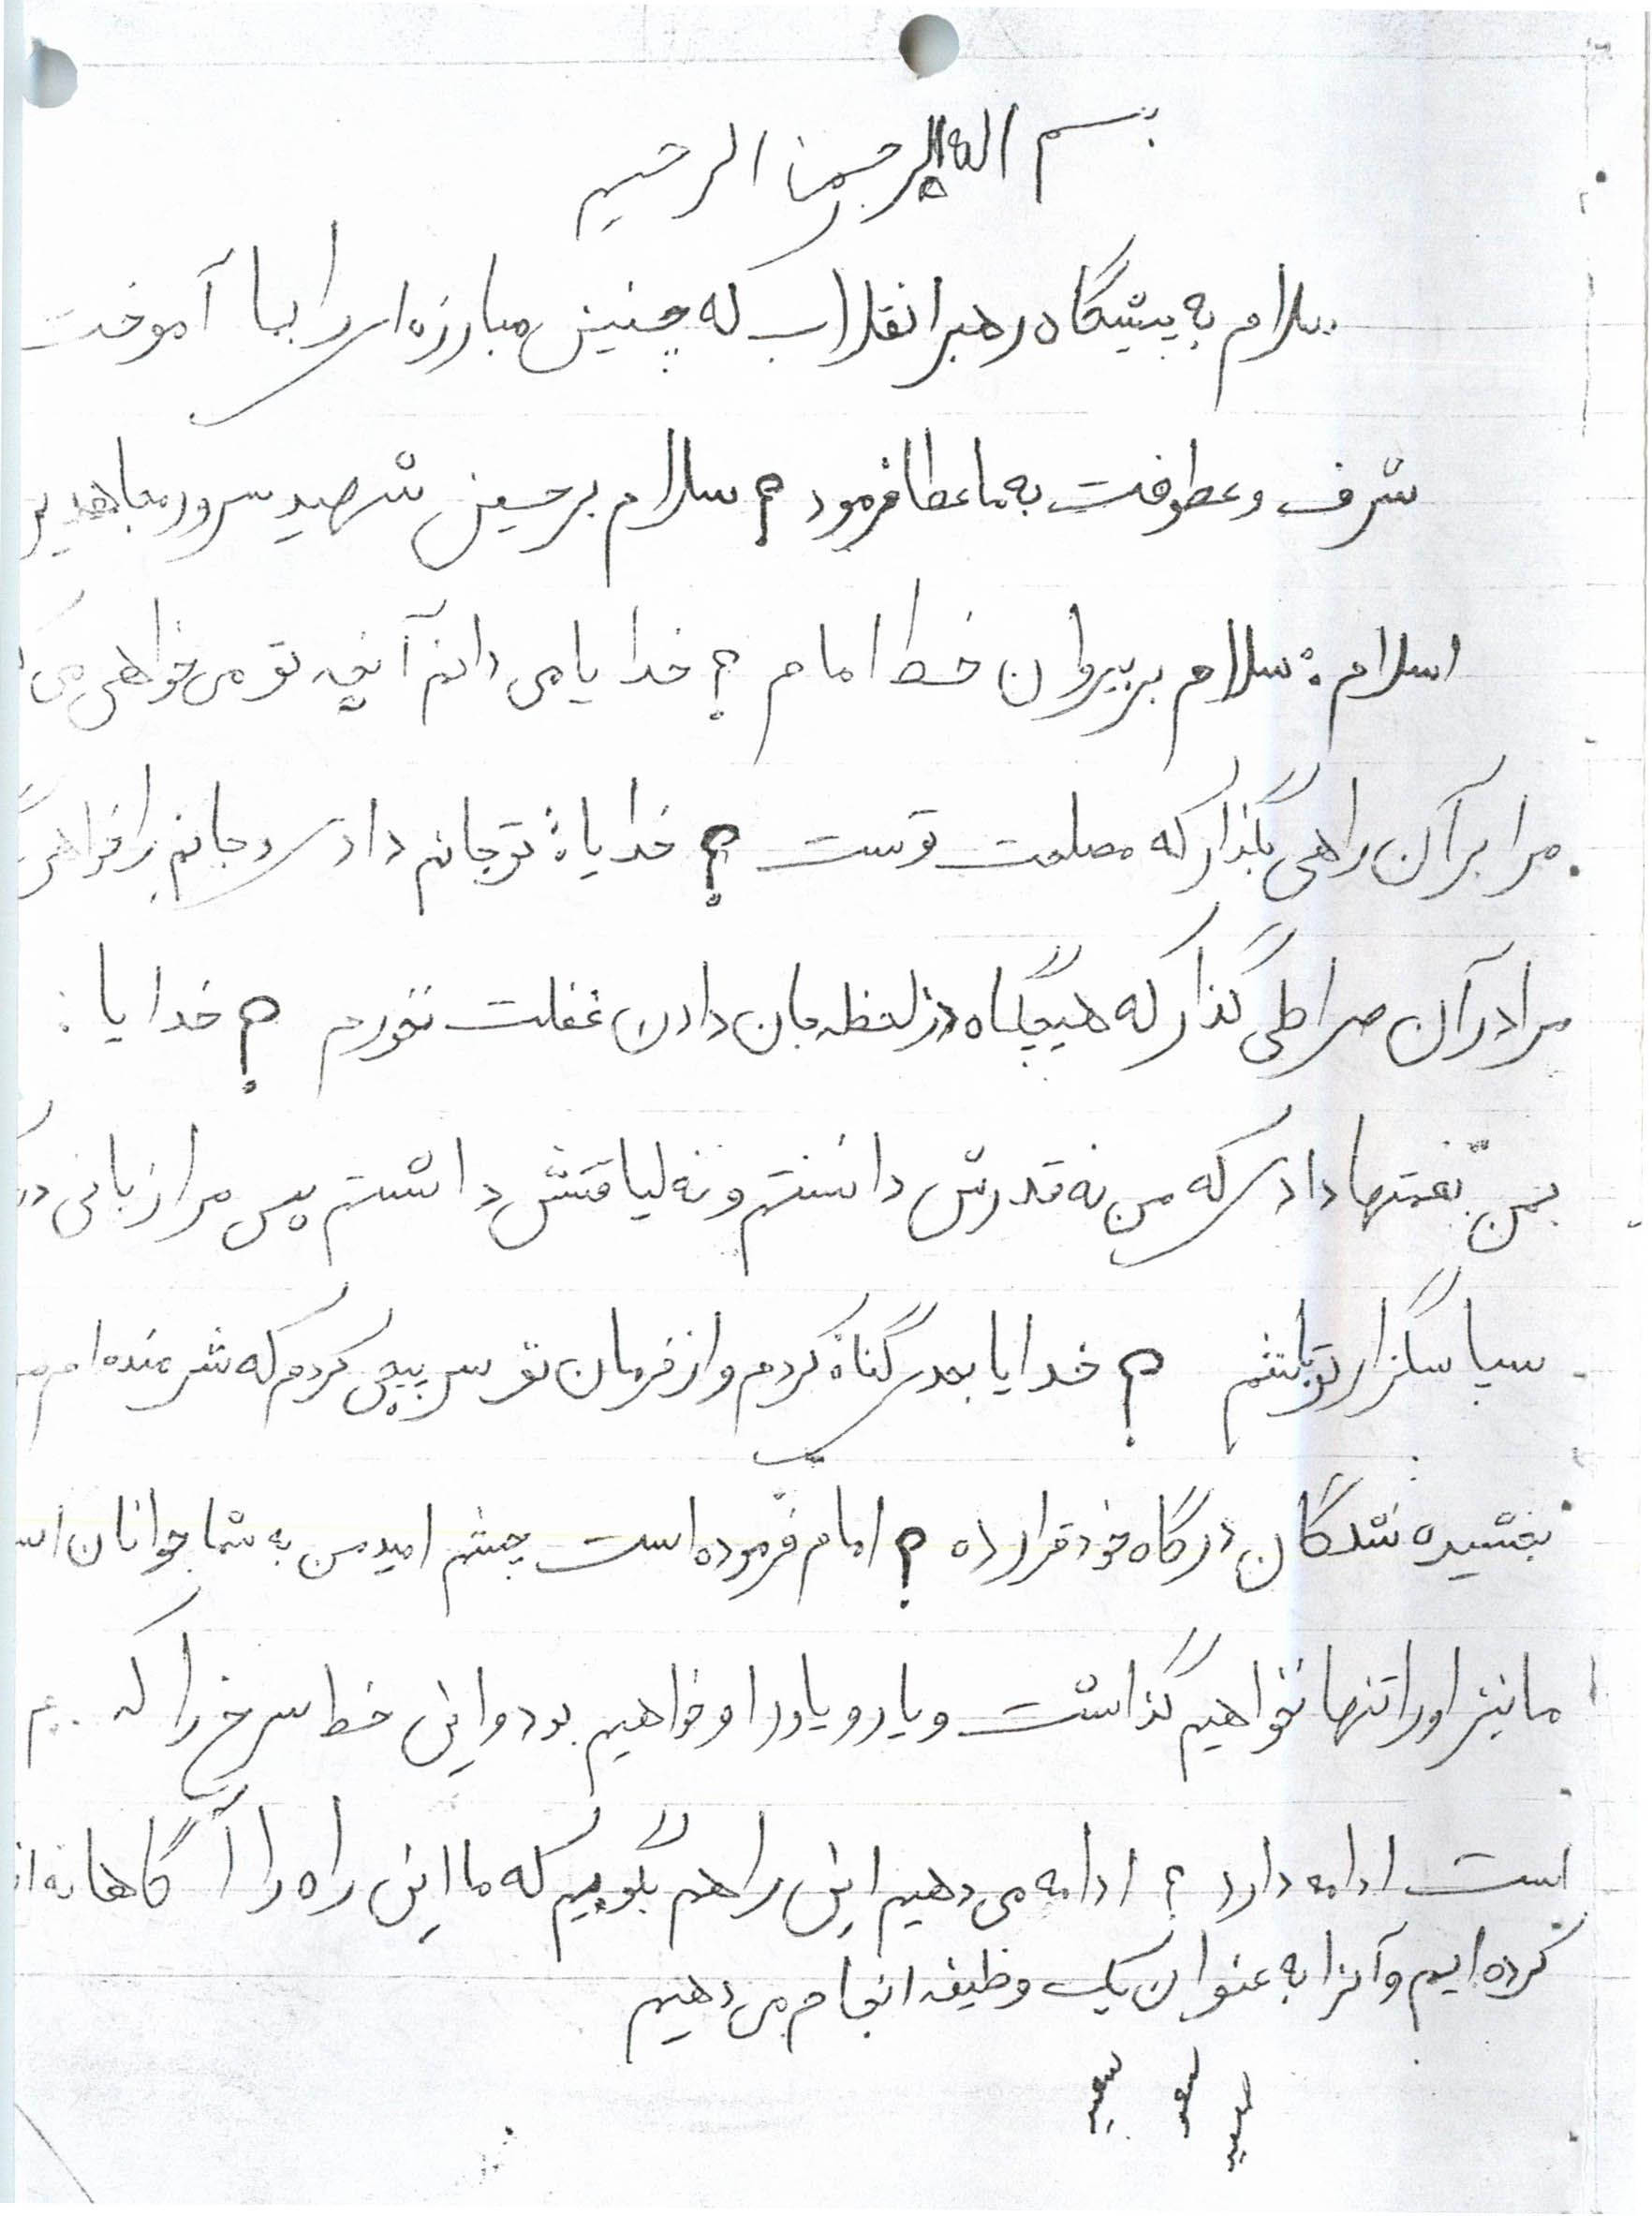 بسم الله الرحمن الرحیم
سلام به پیشگاه رهبر انقلاب که چنین مبارزه ای را بما آموخت
شرف و عطوفت به ما عطا فرمود ؟ سلام بر حسین شهید سرور مجاهدین
اسلام : سلام بر پیروان خط امام ؟ خدایا می دانم آنچه تو می خواهی
مرا بر آن راهی بگذار که مصلحت توست ؟ خدایا : تو جانم دادی و جانم را خواهی
مرا در آن صراطی گذار که هیچگاه در لحظه جان دادن غفلت نخورم ؟ خدایا :
بمن نعمتها دادی که من نه قدرش دانستم و نه لیاقتش داشتم پس مرا زبانی
سپاسگزار تو باشم ؟ خدایا بحدی گناه کردم و از فرمان تو سرپیچی کردم که شرمنده ام
بخشیده شدگان درگاه خود قرار ده ؟ امام فرموده است چشم امید من به شما جوانان
ما نیز او را تنها نخواهیم گذاشت و یار و یاور او خواهیم بود و این خط سرخ را که
است ادامه دارد ؟ ادامه می دهیم این را هم بگوییم که ما این راه را آگاهانه
کرده ایم و آنرا به عنوان یک وظیفه انجام می دهیم